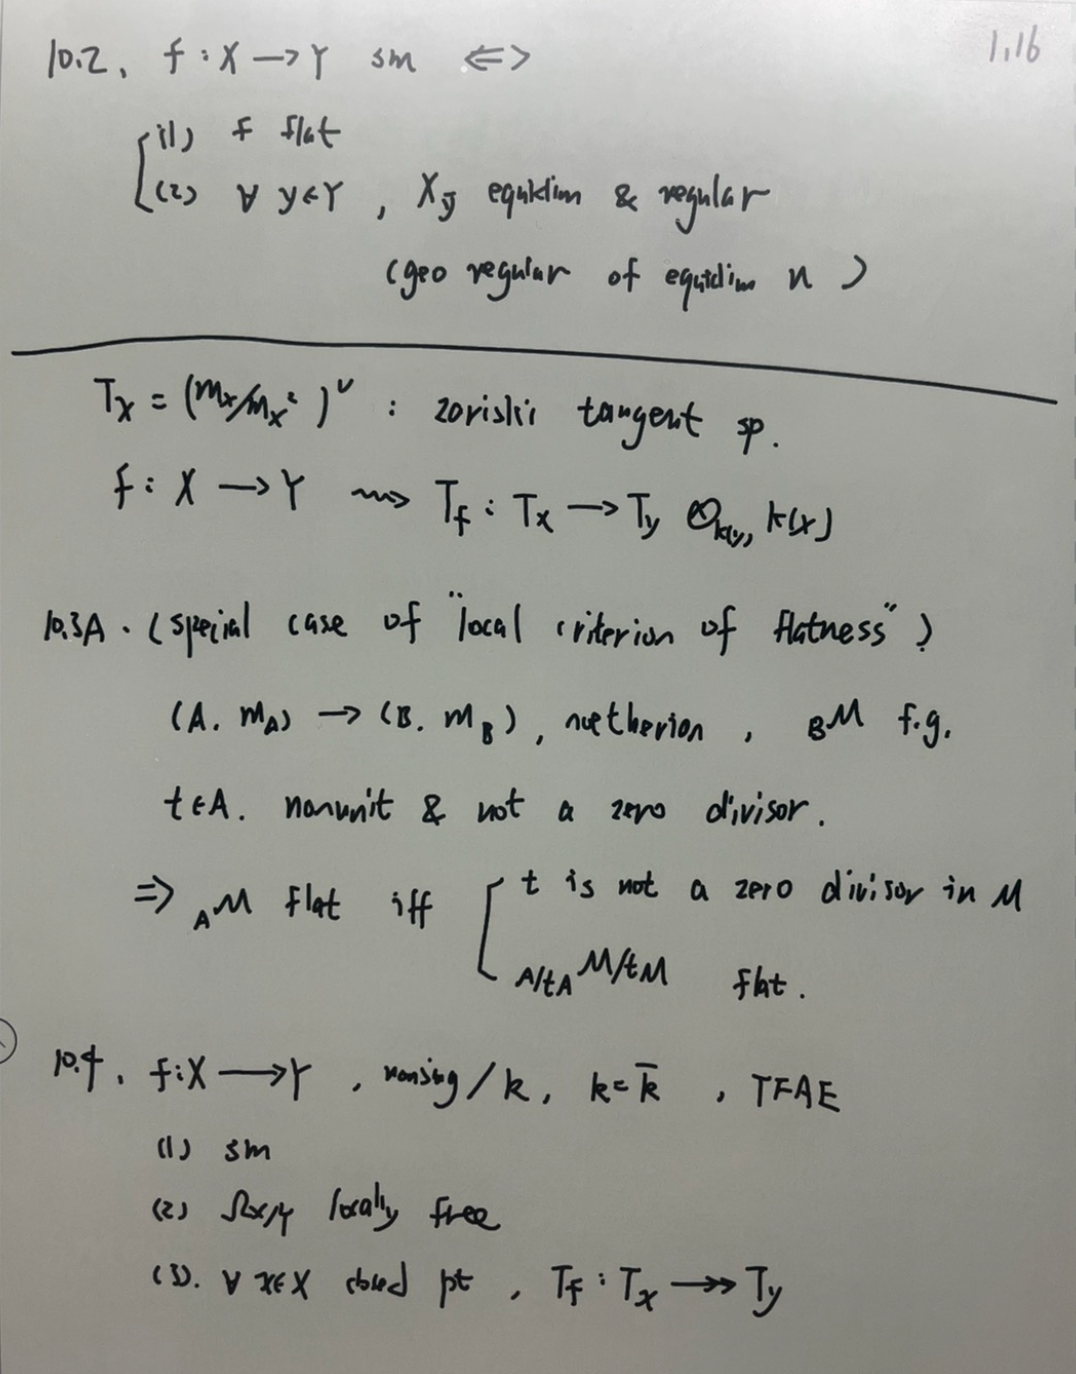 1.16
10.2. f : X → Y sm ⇔
(1) f flat
(2) ∀ y∈Y, X_ȳ equidim & regular
(geo regular of equidim n)
T_x = (m_x/m_x²)^∨ : zariski tangent sp.
f : X → Y ⇝ T_f : T_x → T_y ⊗_{k(y)} k(x)
10.3A. (special case of "local criterion of flatness")
(A. m_A) → (B. m_B), noetherian, _B M f.g.
t∈A. nonunit & not a zero divisor.
⇒ _A M flat iff { t is not a zero divisor in M
_{A/tA} M/tM flat.
10.4. f:X → Y, nonsing/k, k=k̄, TFAE
(1) sm
(2) Ω_{X/Y} locally free
(3). ∀ x∈X closed pt, T_f : T_x ↠ T_y